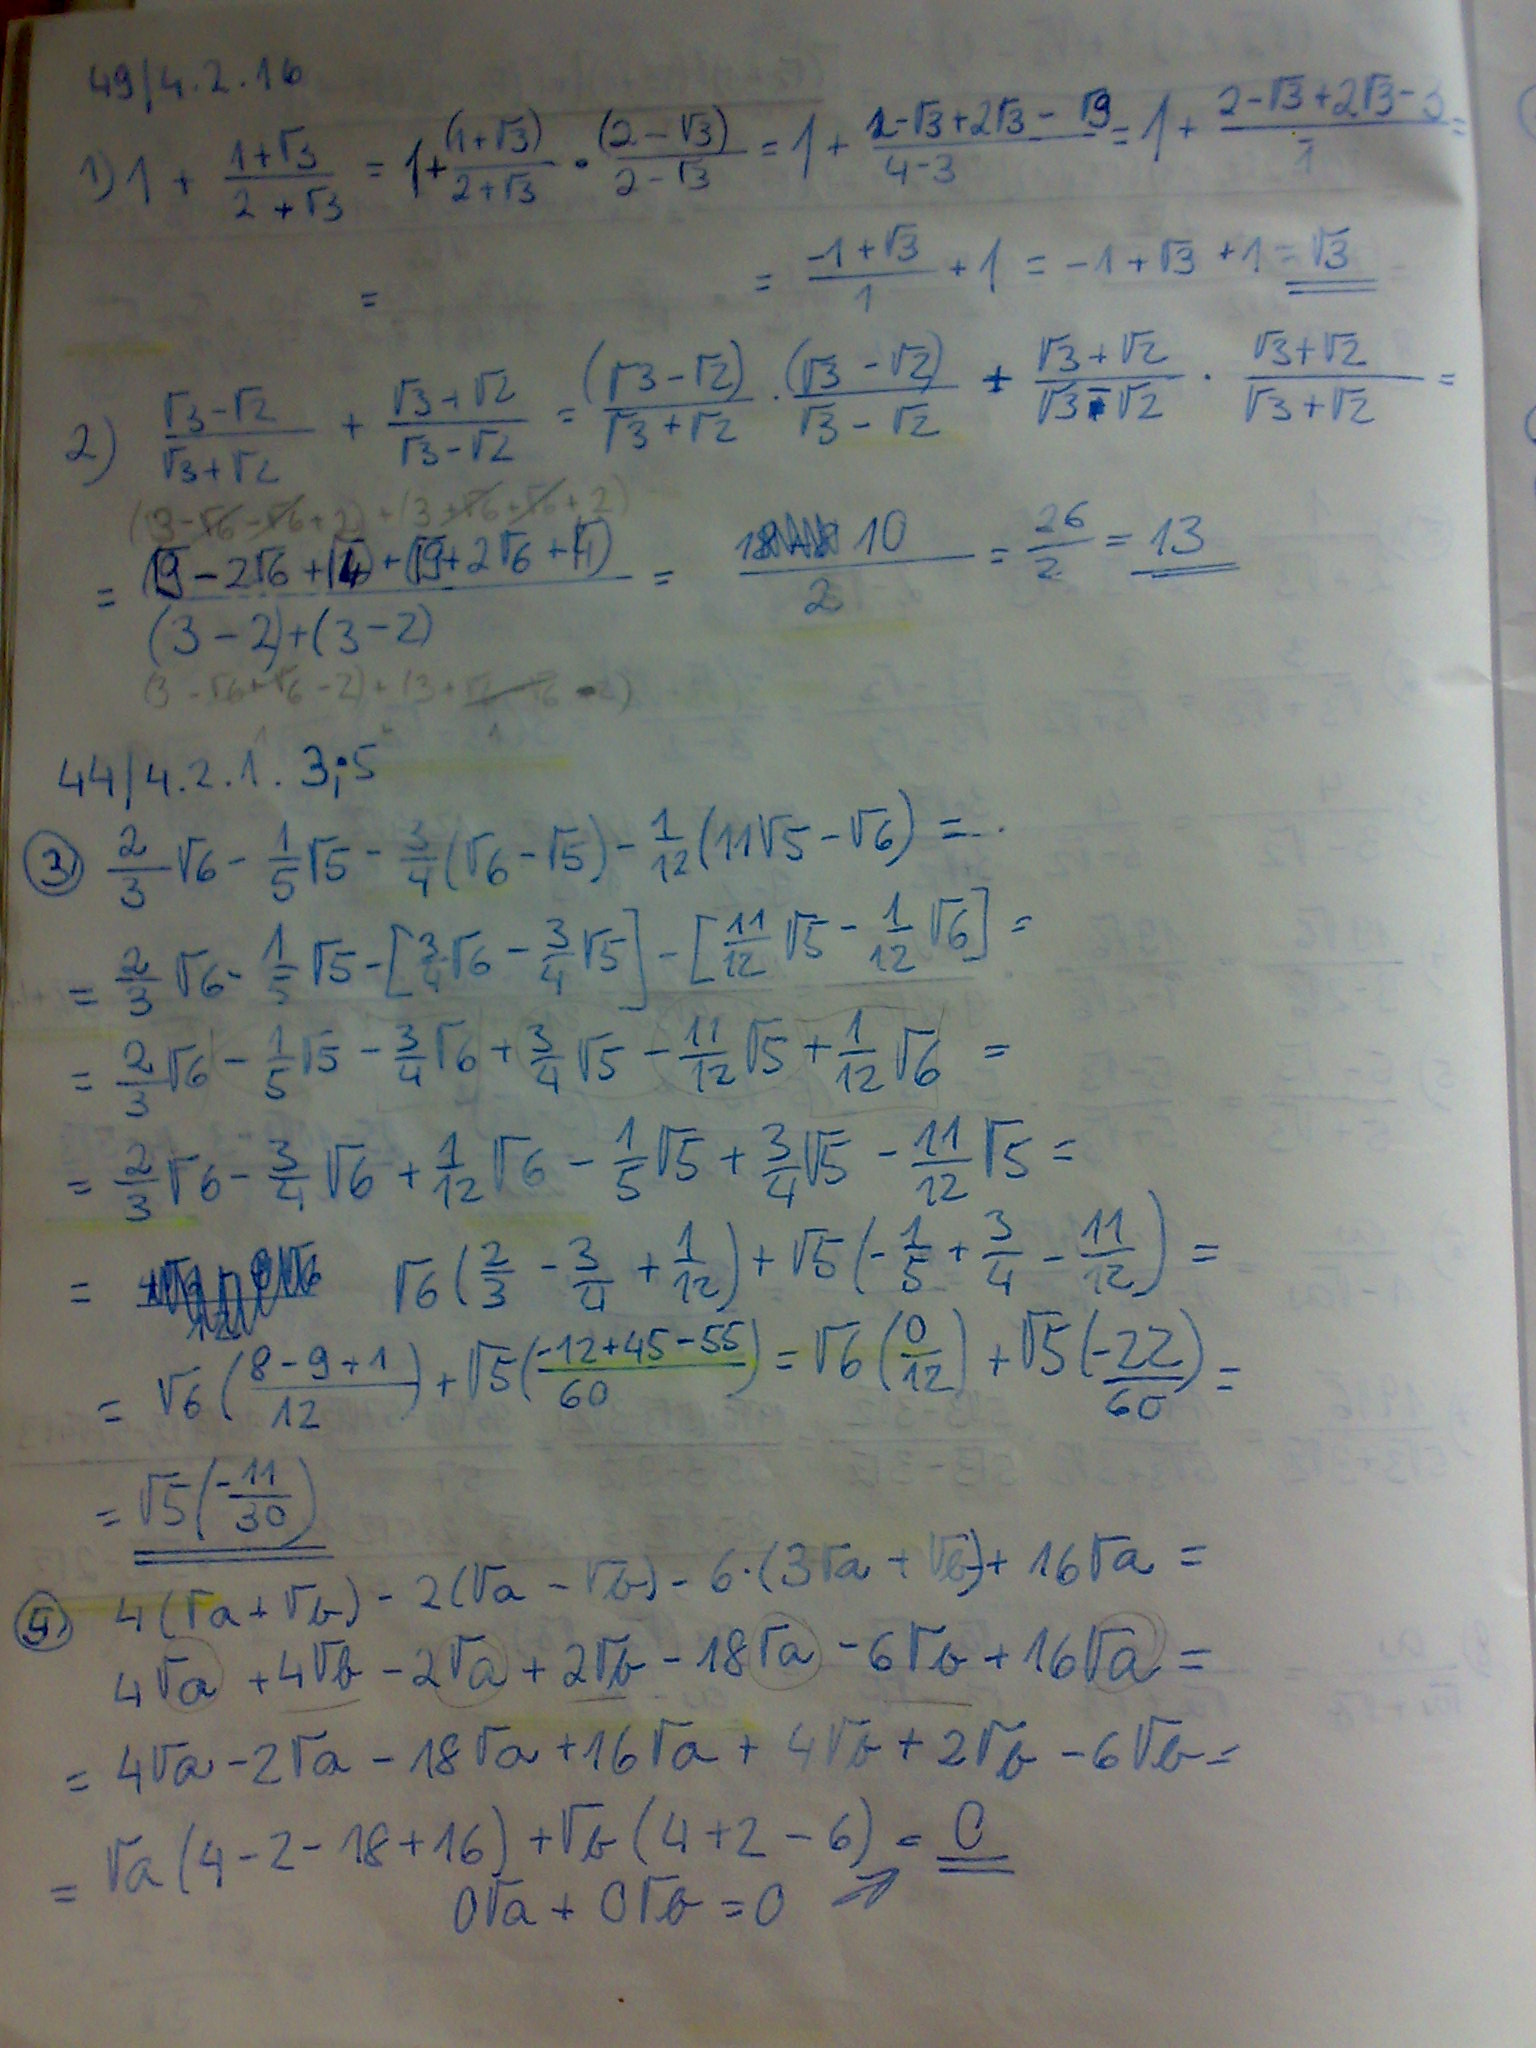 49/4.2.16
1) 1 + (1+√3)/(2+√3) = 1 + (1+√3)/(2+√3) · (2-√3)/(2-√3) = 1 + (2-√3+2√3-√9)/(4-3) = 1 + (2-√3+2√3-3)/1 =
= = (-1+√3)/1 + 1 = -1+√3+1 = √3
2) (√3-√2)/(√3+√2) + (√3+√2)/(√3-√2) = (√3-√2)/(√3+√2) · (√3-√2)/(√3-√2) + (√3+√2)/(√3-√2) · (√3+√2)/(√3+√2) =
(3-√6-√6+2)+(3+√6+√6+2)
= ((√9-2√6+√4)+(√9+2√6+√4))/((3-2)+(3-2)) = 10/2 = 26/2 = 13
(3-√6+√6-2)+(3+√6-√6-2)
44/4.2.1. 3;5
3) 2/3√6 - 1/5√5 - 3/4(√6-√5) - 1/12(11√5-√6) =
= 2/3√6 - 1/5√5 - [3/4√6 - 3/4√5] - [11/12√5 - 1/12√6] =
= 2/3√6 - 1/5√5 - 3/4√6 + 3/4√5 - 11/12√5 + 1/12√6 =
= 2/3√6 - 3/4√6 + 1/12√6 - 1/5√5 + 3/4√5 - 11/12√5 =
= √6(2/3 - 3/4 + 1/12) + √5(-1/5 + 3/4 - 11/12) =
= √6((8-9+1)/12) + √5((-12+45-55)/60) = √6(0/12) + √5(-22/60) =
= √5(-11/30)
5) 4(√a+√b) - 2(√a-√b) - 6·(3√a+√b) + 16√a =
4√a + 4√b - 2√a + 2√b - 18√a - 6√b + 16√a =
= 4√a - 2√a - 18√a + 16√a + 4√b + 2√b - 6√b =
= √a(4-2-18+16) + √b(4+2-6) = 0
0√a + 0√b = 0